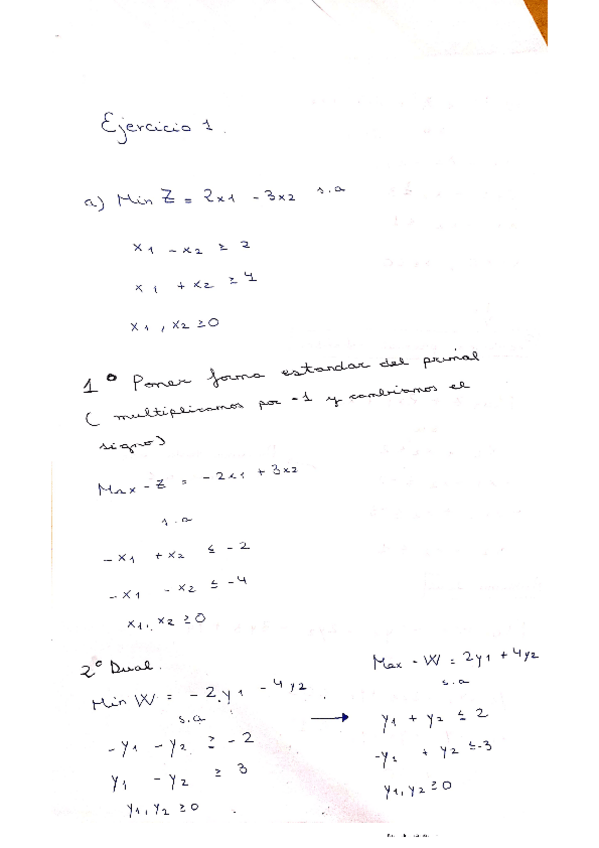 Ejercicio 1.
a) Min Z = 2x1 - 3x2 s.a
x1 - x2 ≥ 2
x1 + x2 ≥ 4
x1, x2 ≥ 0
1º Poner forma estandar del primal
( multiplicamos por -1 y cambiamos el
signo)
Max - Z = - 2x1 + 3x2
s.a
-x1 + x2 ≤ -2
-x1 - x2 ≤ -4
x1, x2 ≥ 0
2º Dual.
Min W = - 2y1 - 4y2
s.a
-y1 - y2 ≥ -2
y1 - y2 ≥ 3
y1, y2 ≥ 0
→
Max - W = 2y1 + 4y2
s.a
y1 + y2 ≤ 2
-y1 + y2 ≤ -3
y1, y2 ≥ 0